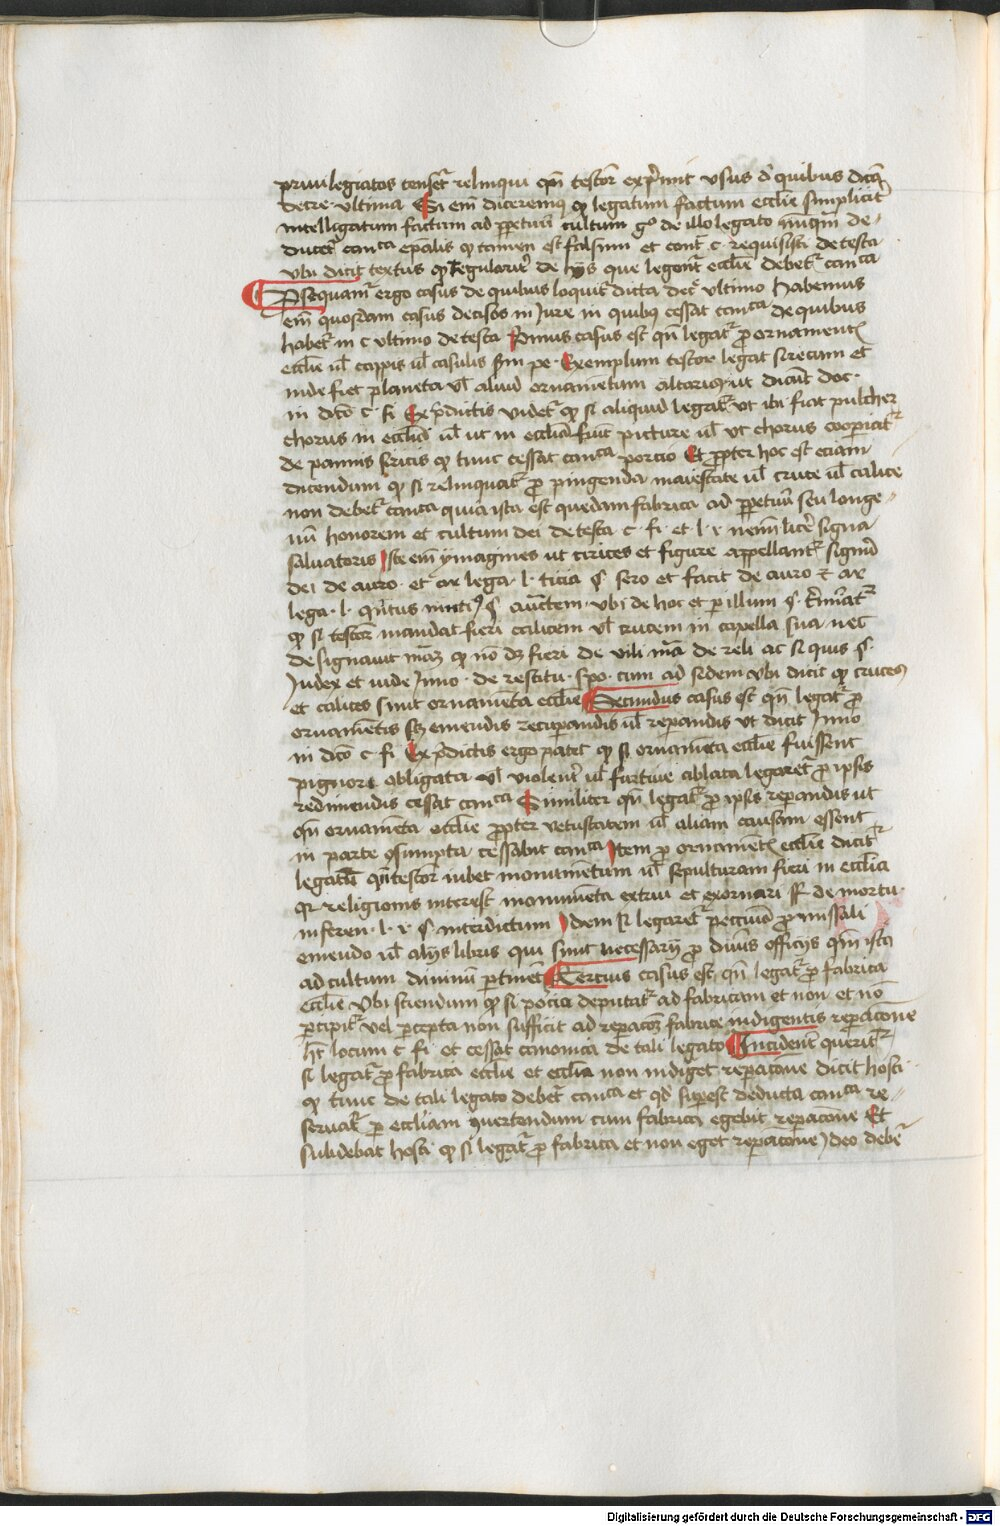 priuilegiatos censetr relinqui qn testor exprimit vsus d quibus dicta
decre. vltima Si em diceremus q legatum factum ecclie simplicitr
intelligatum factum ad perpetuum cultum go de illo legato nunqm de-
ducetr canca epalis q tamen est falsum et cont c. requisisti de testa
vbi dicit textus q regularitr de hys que legantr ecclie debetr canca
Psequamr ergo casus de quibus loquitr dicta dec vltimo habemus
em quosdam casus decisos in Jure in quibus cessat canca de quibus
habetr in c vltimo de testa Primus casus est qn legatr pro ornamentis
ecclie ul cappis ul casulis sm pe. Exemplum testor legat sericum et
inde fiet planeta vl aliud ornamentum altariq ut dicunt doc.
in dco c. fi Ex pdictis videtr q si aliquid legatr ut ibi fiat pulcher
chorus in ecclia ul ut in ecclia fiunt picture ul ut chorus cooperiatr
de pannis siricis q tunc cessat canca porcio Et propter hoc est eciam
dicendum q si relinquatr pro pingenda maiestate ul cruce ul calice
non debetr canca quia ista est quedam fabrica ad perpetuum seu longe-
uum honorem et cultum dei de testa c. fi. et l. r nemini licere signa
saluatoris Iste em ymagines ut cirices et figure appellantr signum
dei de auro. et ar lega. l. ticia § sero et facit de auro et ar
lega. l. quntus vbi de hoc et per illum §. terminatr
q si testor mandat fieri calicem vl crucem in capella sua nec
designauit q no dz fieri de vili ma de reli ac si quis §.
Judex et vide Inno. de restitu. spo. cum ad sedem vbi dicit q cruces
et calices sunt ornamenta ecclie Secundus casus est qn legatr pro
ornamentis scz emendis recuperandis ul reparandis ut dicit Inno
in dco c fi Ex pdictis ergo patet q si ornamenta ecclie fuissent
pignori obligata vl violentr ul furtiue ablata legaretr pro ipsis
redimendis cessat canca Similiter qn legatr pro ipsis reparandis ut
qn ornamenta ecclie propter vetustatem ul aliam causam essent
in parte consumpta cessabit canca Item pro ornamentis ecclie dicitr
legatum qn testor iubet monumentum ul sepulturam fieri in ecclia
qr religionis interest monumenta extrui et exornari ff de mortu.
inferen. l. r. §. interdictum Idem si legaretr peccunia pro missali
emendo ul alys libris qui sunt necessary pro diuinis officys qm ista
ad cultum diuinum pertinent Tercius casus est qn legatr pro fabrica
ecclie vbi sciendum q si porcia deputatr ad fabricam et non et no
percipitr vel percepta non sufficit ad reparacoz fabrice indigentis reparacone
ht locum c fi et cessat canonica de tali legato Incidentr queritr
si legatr pro fabrica ecclie et ecclia non indiget reparacone dicit hosti.
q tunc de tali legato debetr canca et qd superest deducta canca re-
seruatr per eccliam conuertendum cum fabrica egebit reparacone Et
subdebat hosti q si legatr pro fabrica et non eget reparacone Ideo debetr
Digitalisierung gefördert durch die Deutsche Forschungsgemeinschaft - DFG